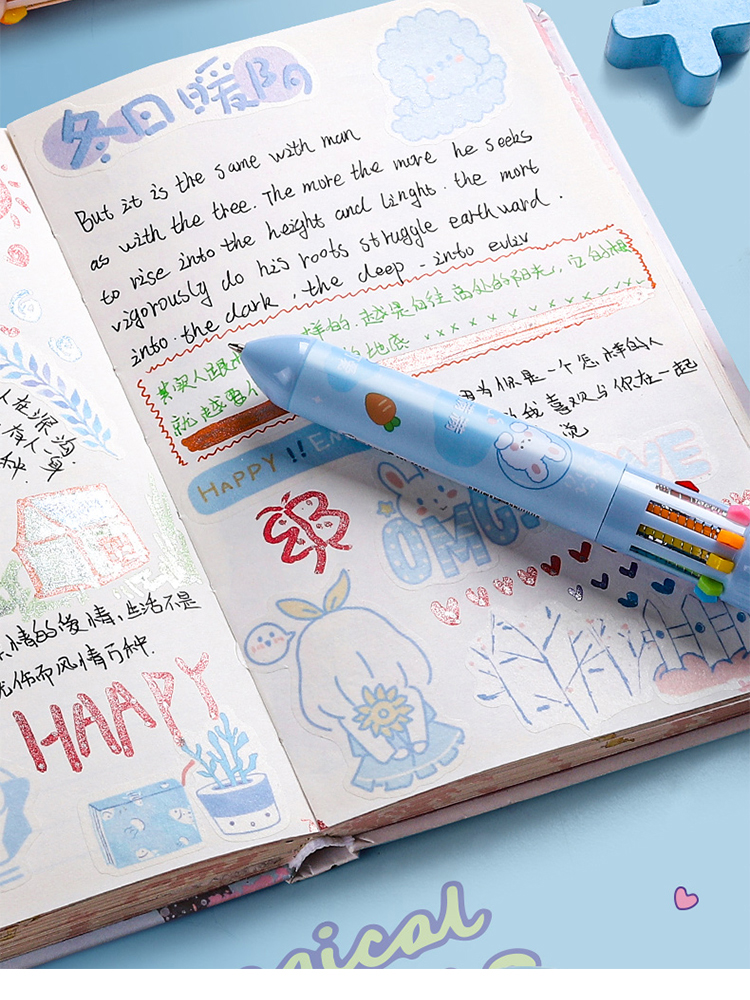 冬日暖阳
But it is the same with man
as with the tree. The more the more he seeks
to rise into the height and linght. the mort
vigorously do his roots struggle earthward.
into the dark, the deep - into
其实人跟 样的.越是向往高处的阳光,它的根
就越要 地底
因为你是一个怎样的人
我喜欢与你在一起
说
HAPPY !!
OMG!
种.
情的 情,生活不是
而风情万种.
HAAPY
gical